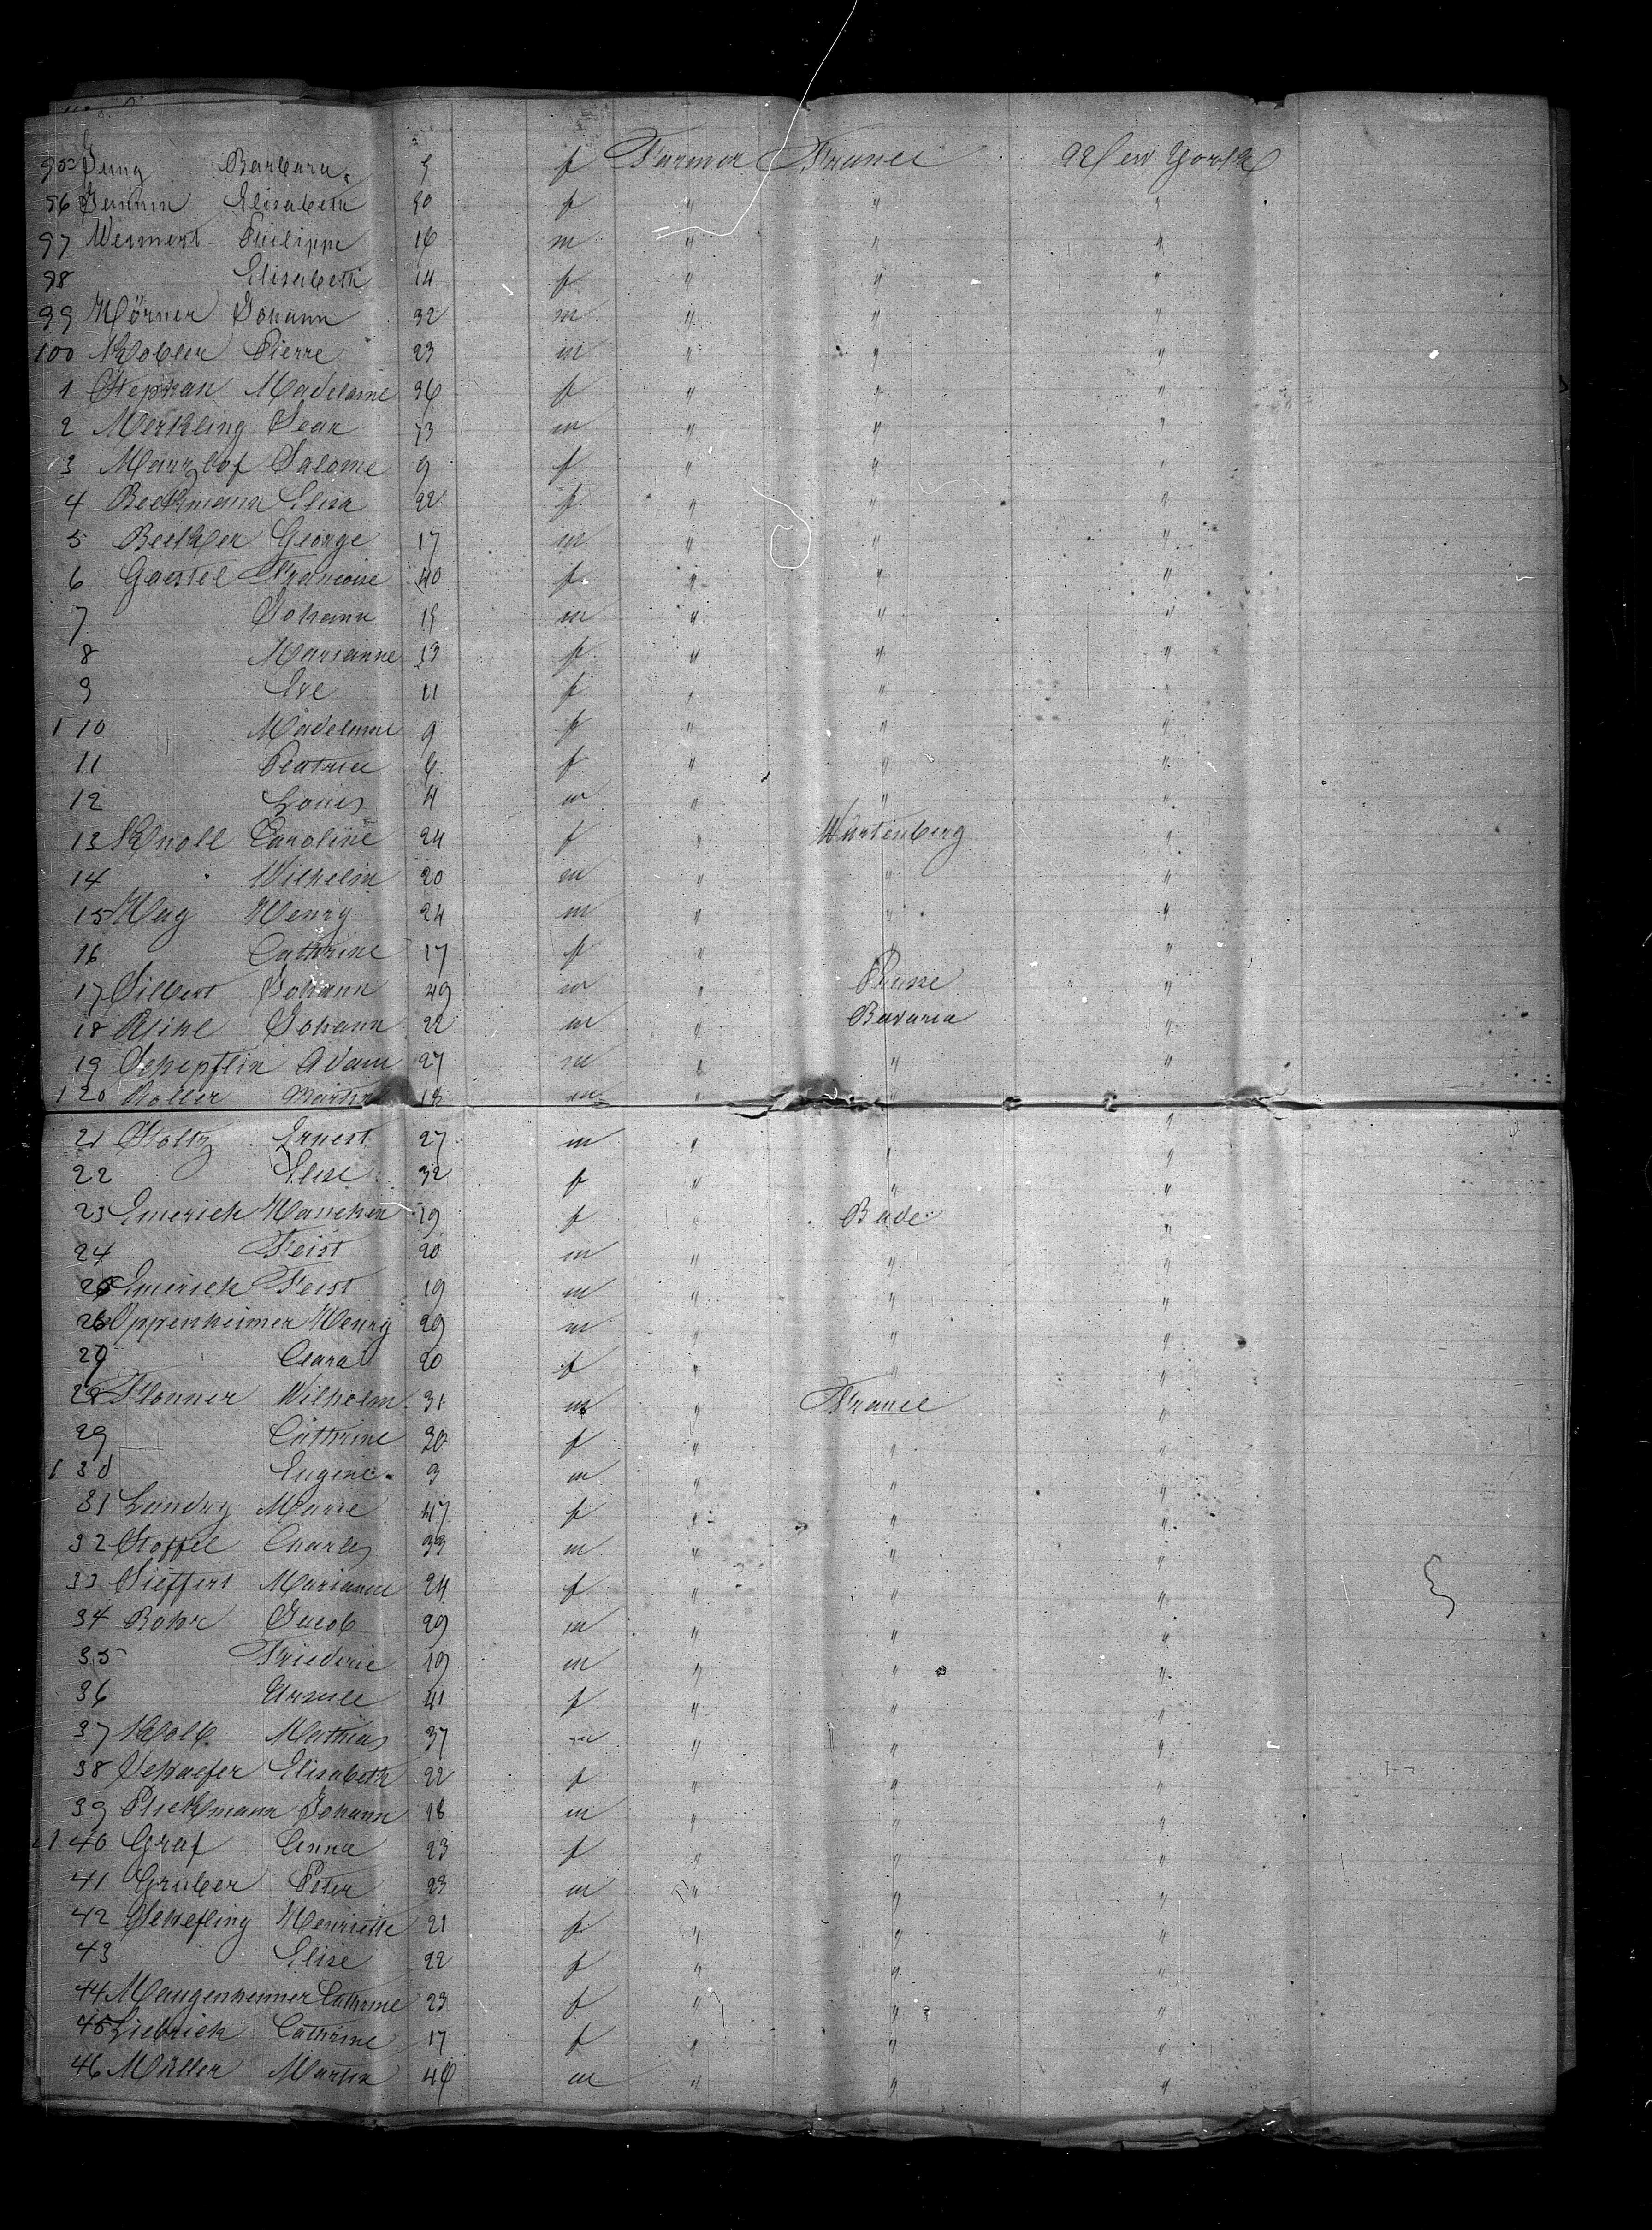 95 Jung Barbara 9 f Farmer France New York
96 Elisabeth f " " "
97 Weimert Philippe 16 m " " "
98 Elisabeth 14 f " " "
99 Hörner Johann 32 m " " "
100 Kobler Pierre 23 m " " "
1 Stephan Madelaine 36 f " " "
2 Merkling Jean m " " "
3 Salome 9 f " " "
4 Beckmann Elisa 22 f " " "
5 George 17 m " " "
6 Gaertel Francoise 40 f " " "
7 Johann 15 m " " "
8 Marianne 13 f " " "
9 Eve 11 f " " "
1 10 Madelaine 9 f " " "
11 Beatrice 6 f " " "
12 Louis 4 m " " "
13 Knoll Caroline 24 f " Wurtemberg "
14 Wilhelm 20 m " " "
15 Hug Henry 24 m " " "
16 Cathrine 17 f " " "
17 Silbert Johann 49 m " Prusse "
18 Johann 22 m " Bavaria "
19 Schepflin Adam 27 m " " "
1 20 Koller Martin 18 m " " "
21 Stoltz Ernest 27 m " " "
22 Elise 32 f " " "
23 Emerich Hanchen 19 f " Bade "
24 Feist 20 m " " "
25 Emerich Feist 19 m " " "
26 Oppenheimer Henry 29 m " " "
27 Clara 20 f " " "
28 Flonner Wilhelm 31 m " France "
29 Cathrine 30 f " " "
1 30 Eugene 3 m " " "
31 Landry Marie 47 f " " "
32 Stoffel Charles 33 m " " "
33 Sieffert Marianne 24 f " " "
34 Bohr Jacob 29 m " " "
35 Friederic 19 m " " "
36 Ursule 41 f " " "
37 Kolb Mathias 37 m " " "
38 Schaefer Elisabeth 22 f " " "
39 Johann 18 m " " "
1 40 Graf Anna 23 f " " "
41 Gruber Peter 23 m " " "
42 Schefling Henriette 21 f " " "
43 Elise 22 f " " "
44 Maugenheimer Cathrine 23 f " " "
45 Liebrich Cathrine 17 f " " "
46 Müller Martin 46 m " " "